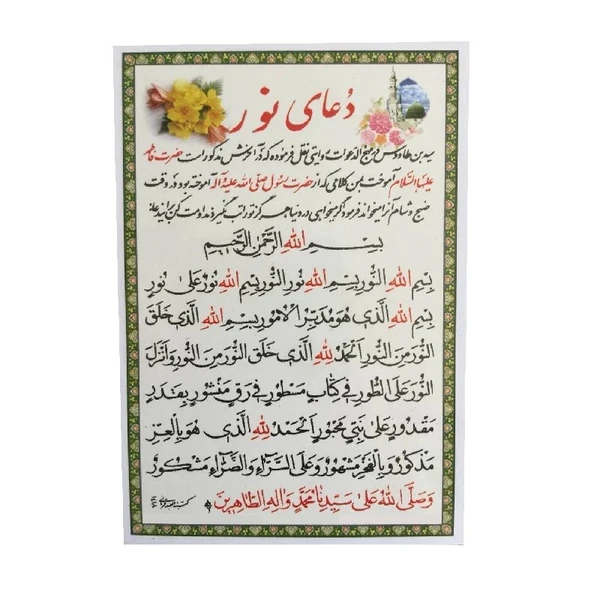 دُعای نور
سید بن طاووس در مهج الدعوات روایتی نقل فرموده که در آخرش مذکور است حضرت فاطمه
علیها السلام آموخت بمن کلامی که از حضرت رسول صلی الله علیه و آله آموخته بود و در وقت
صبح و شام آنرا میخواند فرمود اگر میخواهی در دنیا هرگز تو را تب نگیرد مداومت کن بر
بِسْمِ اللهِ الرَّحْمٰنِ الرَّحیمِ
بِسْمِ اللهِ النُّورِ بِسْمِ اللهِ نُورِ النُّورِ بِسْمِ اللهِ نُورٌ عَلىٰ نُورٍ
بِسْمِ اللهِ الَّذى هُوَ مُدَبِّرُ الْاُمُورِ بِسْمِ اللهِ الَّذى خَلَقَ
النُّورَ مِنَ النُّورِ اَلْحَمْدُ لِلّٰهِ الَّذى خَلَقَ النُّورَ مِنَ النُّورِ وَاَنْزَلَ
النُّورَ عَلَى الطُّورِ فى كِتابٍ مَسْطُورٍ فى رَقٍّ مَنْشُورٍ بِقَدَرٍ
مَقْدُورٍ عَلىٰ نَبِىٍّ مَحْبُورٍ اَلْحَمْدُ لِلّٰهِ الَّذى هُوَ بِالْعِزِّ
مَذْكُورٌ وَبِالْفَخْرِ مَشْهُورٌ وَعَلَى السَّرّاءِ وَالضَّرّاءِ مَشْكُورٌ
وَصَلَّى اللهُ عَلىٰ سَيِّدِنا مُحَمَّدٍ وَآلِهِ الطّاهِرينَ